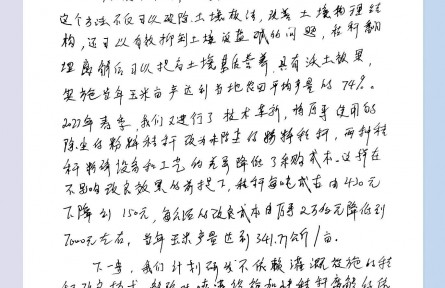 这个方法不仅可以破除土壤板结，改善土壤物理结
构，还可以有效抑制土壤返盐碱的问题，秸秆翻
埋腐解后可以提高土壤基层营养，具有沃土效果，
实施当年玉米亩产达到当地农田平均产量的74%。
2022年春季，我们又进行了技术革新，将原来使用的
除尘的粉料秸秆改为未除尘的粉料秸秆，两种秸
秆粉碎设备和工艺的差异降低了采购成本。这样在
不影响改良效果的前提下，秸秆每吨成本由430元
下降到150元，每公顷的改良成本由原来2万多元降低到
7000元左右，当年玉米产量达到341.77公斤/亩。
下一步，我们计划研发不依赖灌溉设施的秸